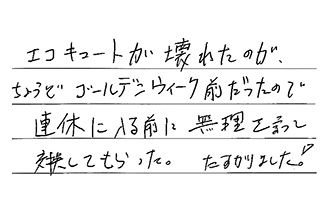 エコキュートが壊れたのが、
ちょうどゴールデンウィーク前だったので
連休に入る前に無理を言って
交換してもらった。 たすかりました!